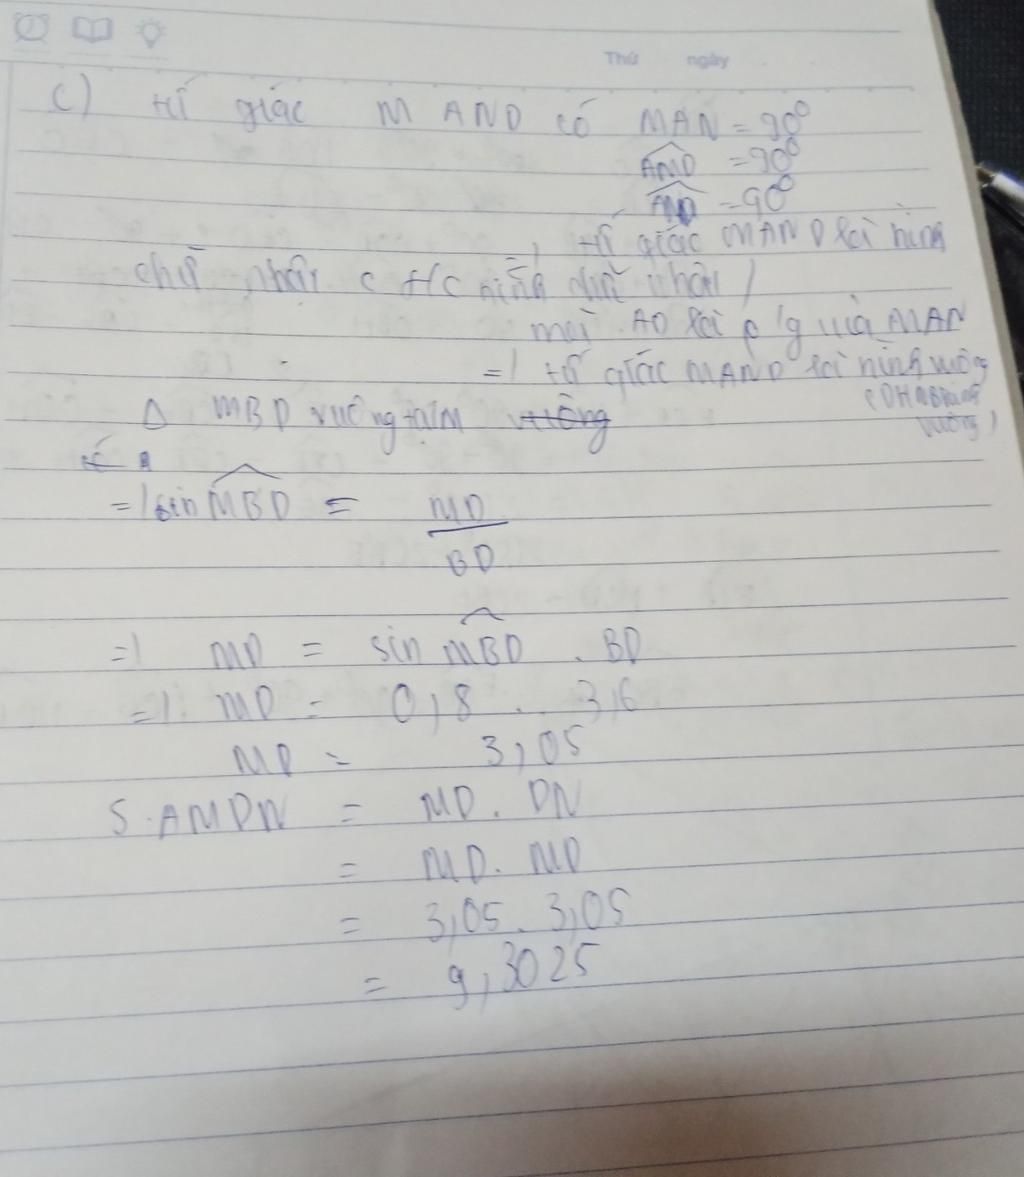 Thứ ngày
c) tứ giác MAND có MAN = 90°
AMD = 90°
AND = 90°
tứ giác MAND là hình
chữ nhật
mà AD là p/g của MAN
=) tứ giác MAND là hình vuông
(DHNB hình vuông)
Δ MBD vuông tại M vuông
=) sin MBD = MD / BD
=) MD = sin MBD . BD
=) MD = 0,8 . 3,6
MD = 3,05
S.AMDN = MD. DN
= MD. MD
= 3,05. 3,05
= 9,3025